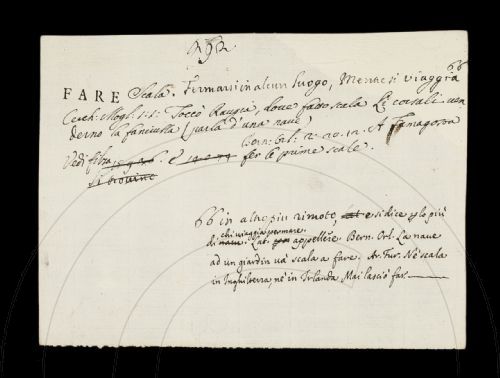 252
66
FARE Scala. Fermarsi in alcun luogo, Mentre si viaggia
Cecch: Mogl: 1: 1: Toccò Raugia, dove fatto scala Li corsali ven
derno la fanciulla (parla d'una nave)
Bern: Orl: 2: 20. 12. A Famagosta
Vedi fer le prime scale.
66 in alto piu rimoto, e si dice p lo più
chi viaggia per mare.
di Lat. appellĕre. Bern. Orl. La nave
ad un giardin và scala a fare. Ar. Fur. Nè scala
in Inghilterra, nè in Irlanda Mai lasciò far.